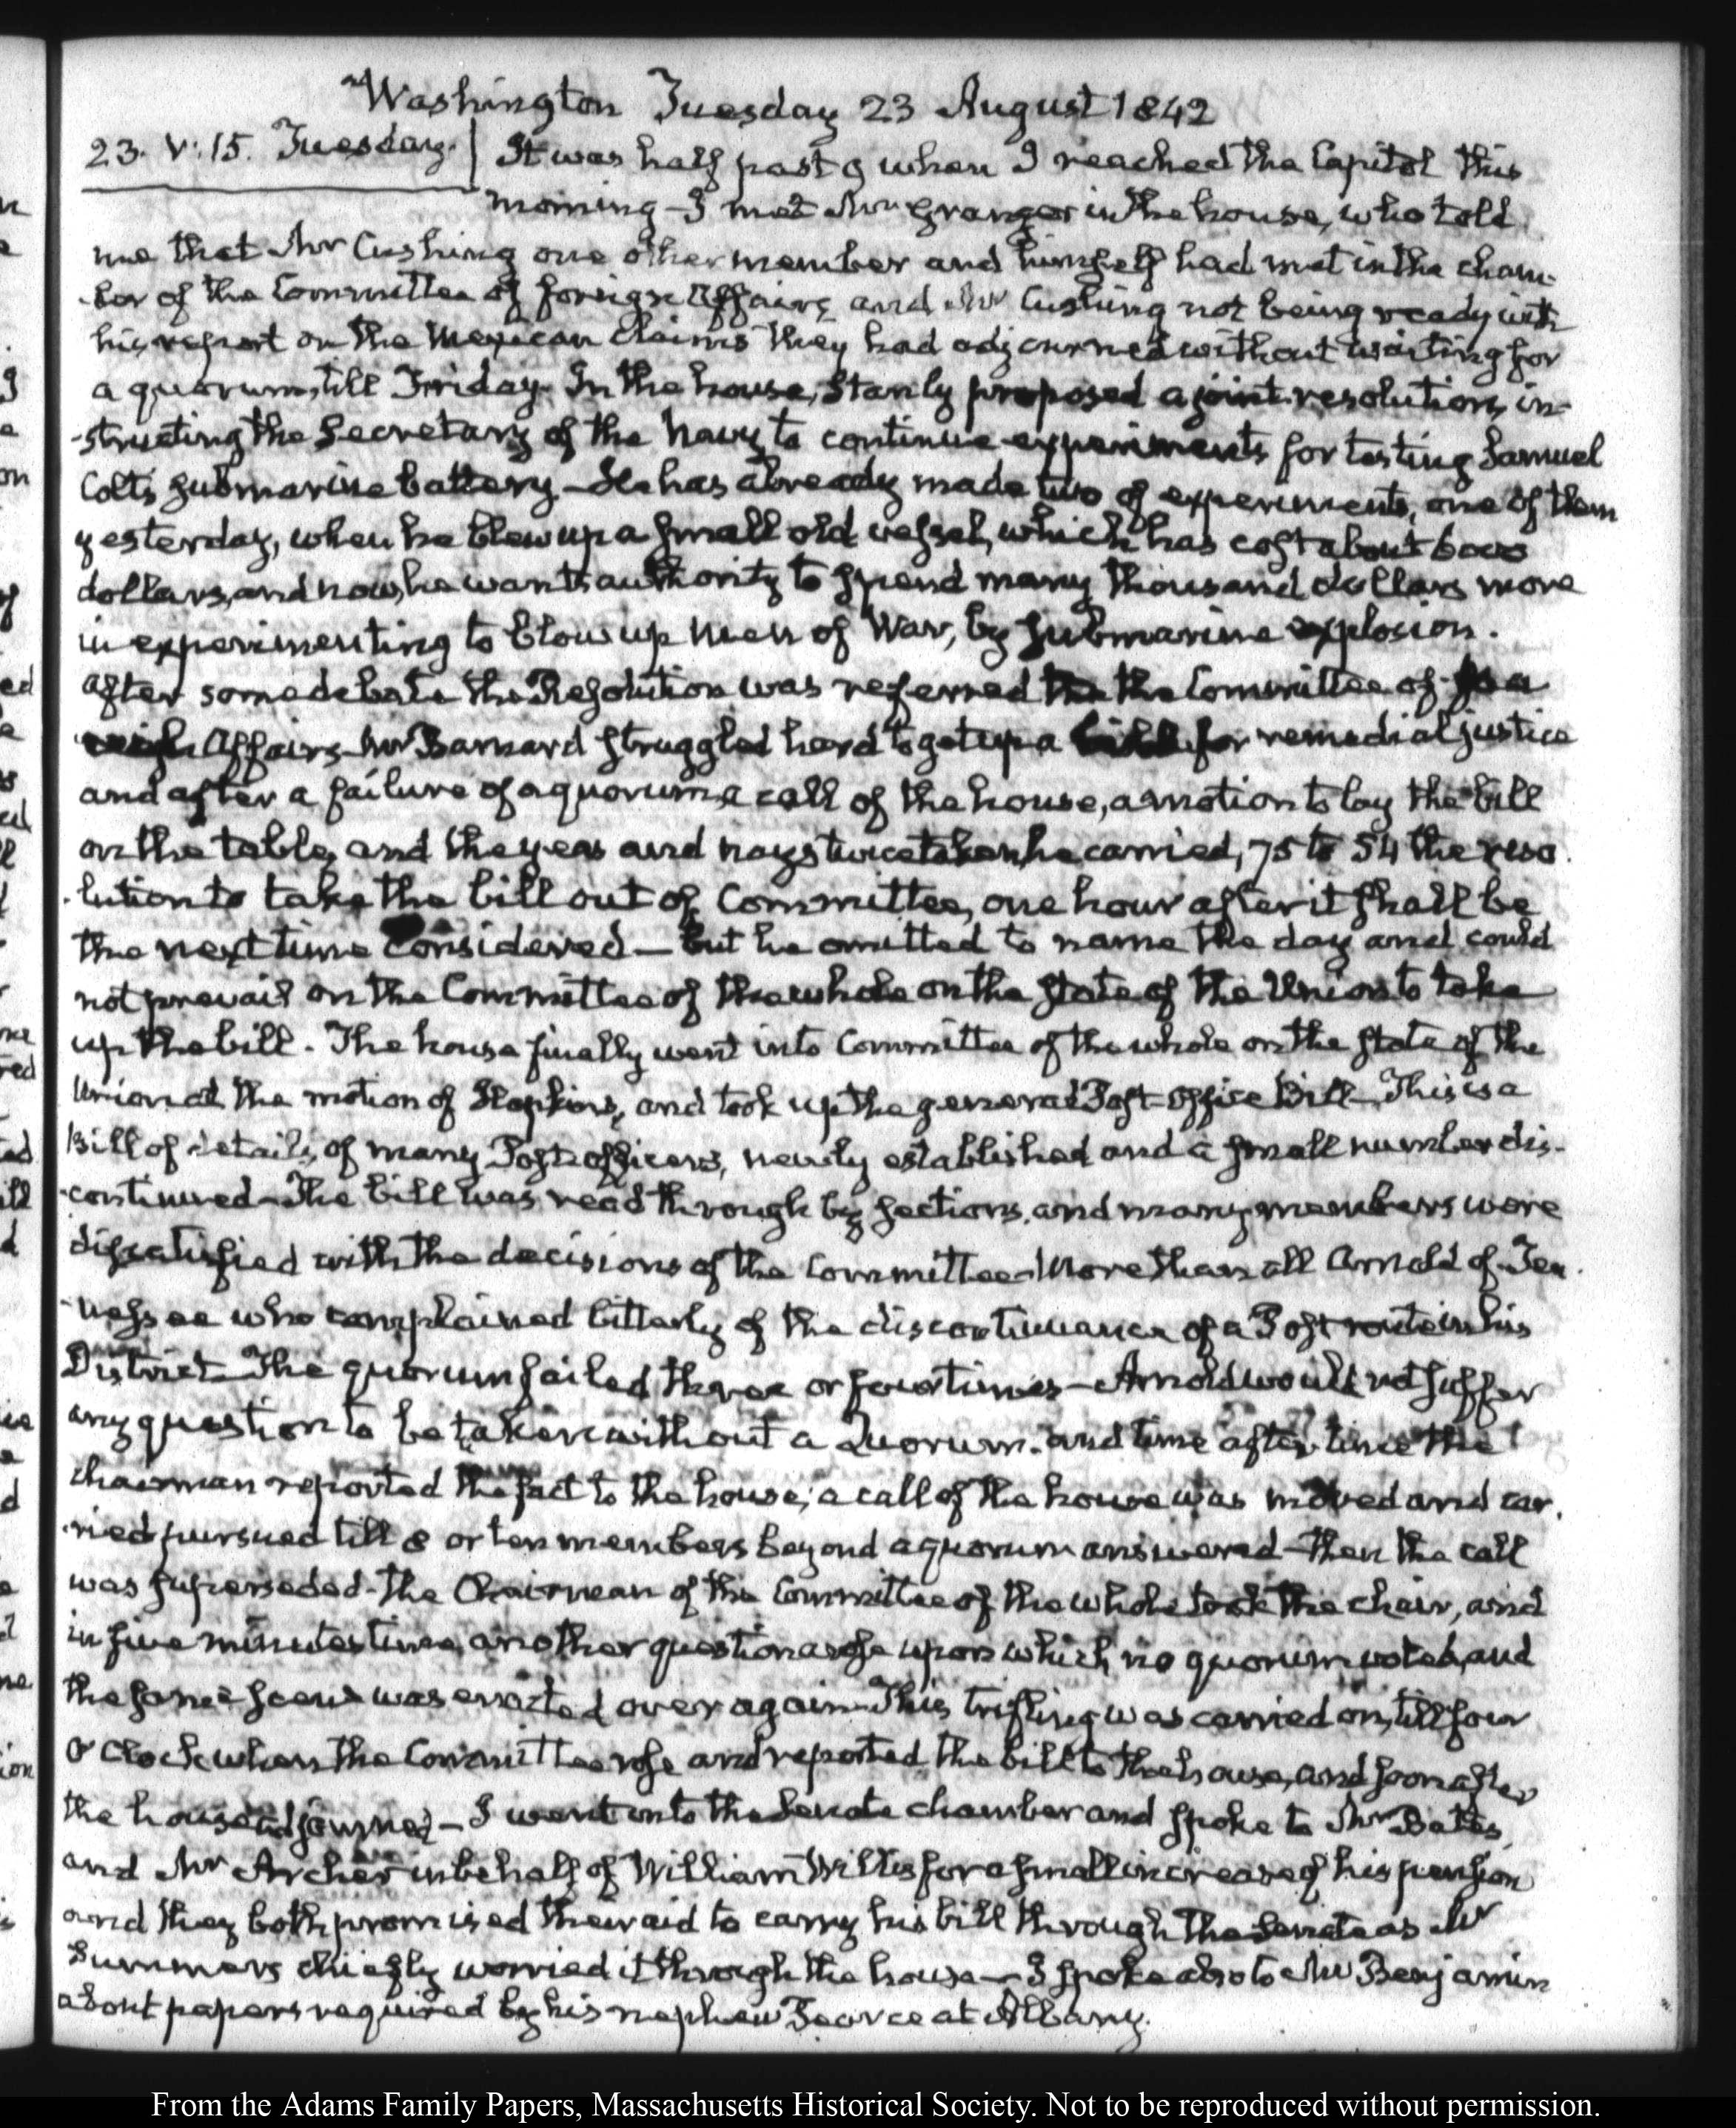 Washington Tuesday 23 August 1842
23. V:15. Tuesday. It was half past 9 when I reached the Capitol this
morning – I met Mr Granger in the house, who told
me that Mr Cushing one other member and himself had met in the cham-
-ber of the Committee of foreign Affairs, and Mr Cushing not being ready with
his report on the Mexican Claims they had adjourned without waiting for
a quorum, till Friday. In the house, Stanly proposed a joint resolution, in-
-structing the Secretary of the Navy to continue experiments for testing Samuel
Colt's submarine battery – He has already made two of experiments, one of them
yesterday, when he blew up a small old vessel, which has cost about
dollars, and now he wants authority to spend many thousand dollars more
in experimenting to blow up Men of War, by submarine explosion.
After some debate the Resolution was referred the Committee of
Affairs – Mr Barnard struggled hard to get up a for remedial justice
and after a failure of a quorum, a call of the house, a motion to lay the bill
on the table, and the yeas and nays twice taken, he carried, 75 to 54 the reso-
-lution to take the bill out of Committee, one hour after it shall be
the next time considered – but he omitted to name the day and could
not prevail on the Committee of the whole on the state of the Union to take
up the bill. The house finally went into Committee of the whole on the state of the
Union at the motion of Hopkins, and took up the general Post-Office Bill – This is a
Bill of details, of many Post officers, newly established and a small number dis-
-continued – The bill was read through by sections, and many members were
dissatisfied with the decisions of the Committee – More than all Arnold of Ten-
-nessee who complained bitterly of the discontinuance of a Post route in his
District – The quorum failed three or four times – Arnold would not suffer
any question to be taken without a Quorum. and time after time the
chairman reported the fact to the house; a call of the house was moved and car-
-ried pursued till 8 or ten members beyond a quorum answered – then the call
was superseded – the Chairman of the Committee of the whole took the chair, and
in five minutes time, another question arose upon which no quorum voted, and
the same scene was enacted over again – This trifling was carried on, till four
O'Clock when the Committee rose and reported the bill to the house, and soon after
the house adjourned – I went into the Senate chamber and spoke to Mr Bates,
and Mr Archer in behalf of William Willis for a small increase of his pension
and they both promised their aid to carry his bill through the Senate as Mr
Summers chiefly worried it through the house – I spoke also to Mr Benjamin
about papers required by his nephew Pearce at Albany.
From the Adams Family Papers, Massachusetts Historical Society. Not to be reproduced without permission.